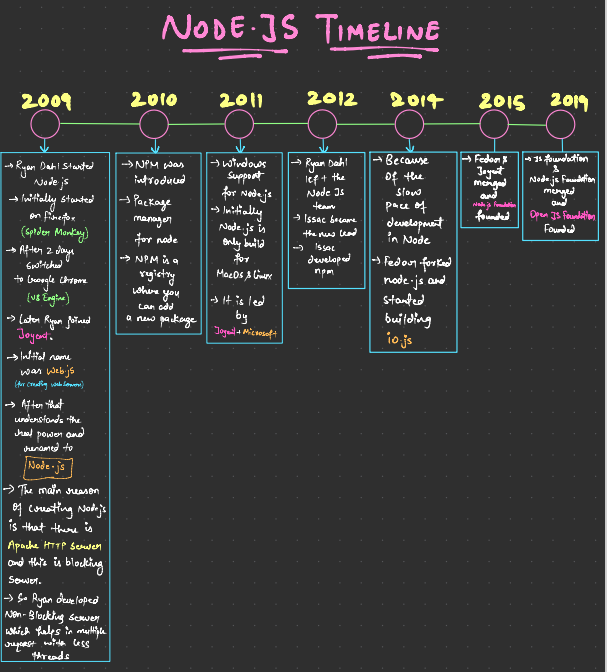 NODE.JS TIMELINE
2009
2010
2011
2012
2014
2015
2019
→ Ryan Dahl Started
Node js
→ Initially Started
on Firefox
(Spider Monkey)
→ After 2 days
switched
to Google Chrome
(V8 Engine)
→ Later Ryan joined
Joyent.
→ Initial name
was Web.js
(for creating web servers)
→ After that
understands the
real power and
renamed to
Node.js
→ The main reason
of creating Node.js
is that there is
Apache HTTP Server
and this is blocking
server.
→ So Ryan developed
Non-Blocking server
which helps in multiple
request with less
threads
→ NPM was
introduced
→ Package
manager
for node
→ NPM is a
registry
where you
can add
a new package
→ Windows
support
for Node.js
→ Initially
Node.js is
only build
for
MacOS & Linux
→ It is led
by
Joyent + Microsoft
→ Ryan Dahl
left the
Node JS
team
→ Issac became
the new lead
→ Issac
developed
npm
→ Because
of the
slow
pace of
development
in Node
→ Fedor forked
node.js and
started
building
io.js
→ Fedor &
Joyent
merged
and
Node.js Foundation
founded
→ JS foundation
&
Node.js Foundation
merged
and
Open JS Foundation
Founded